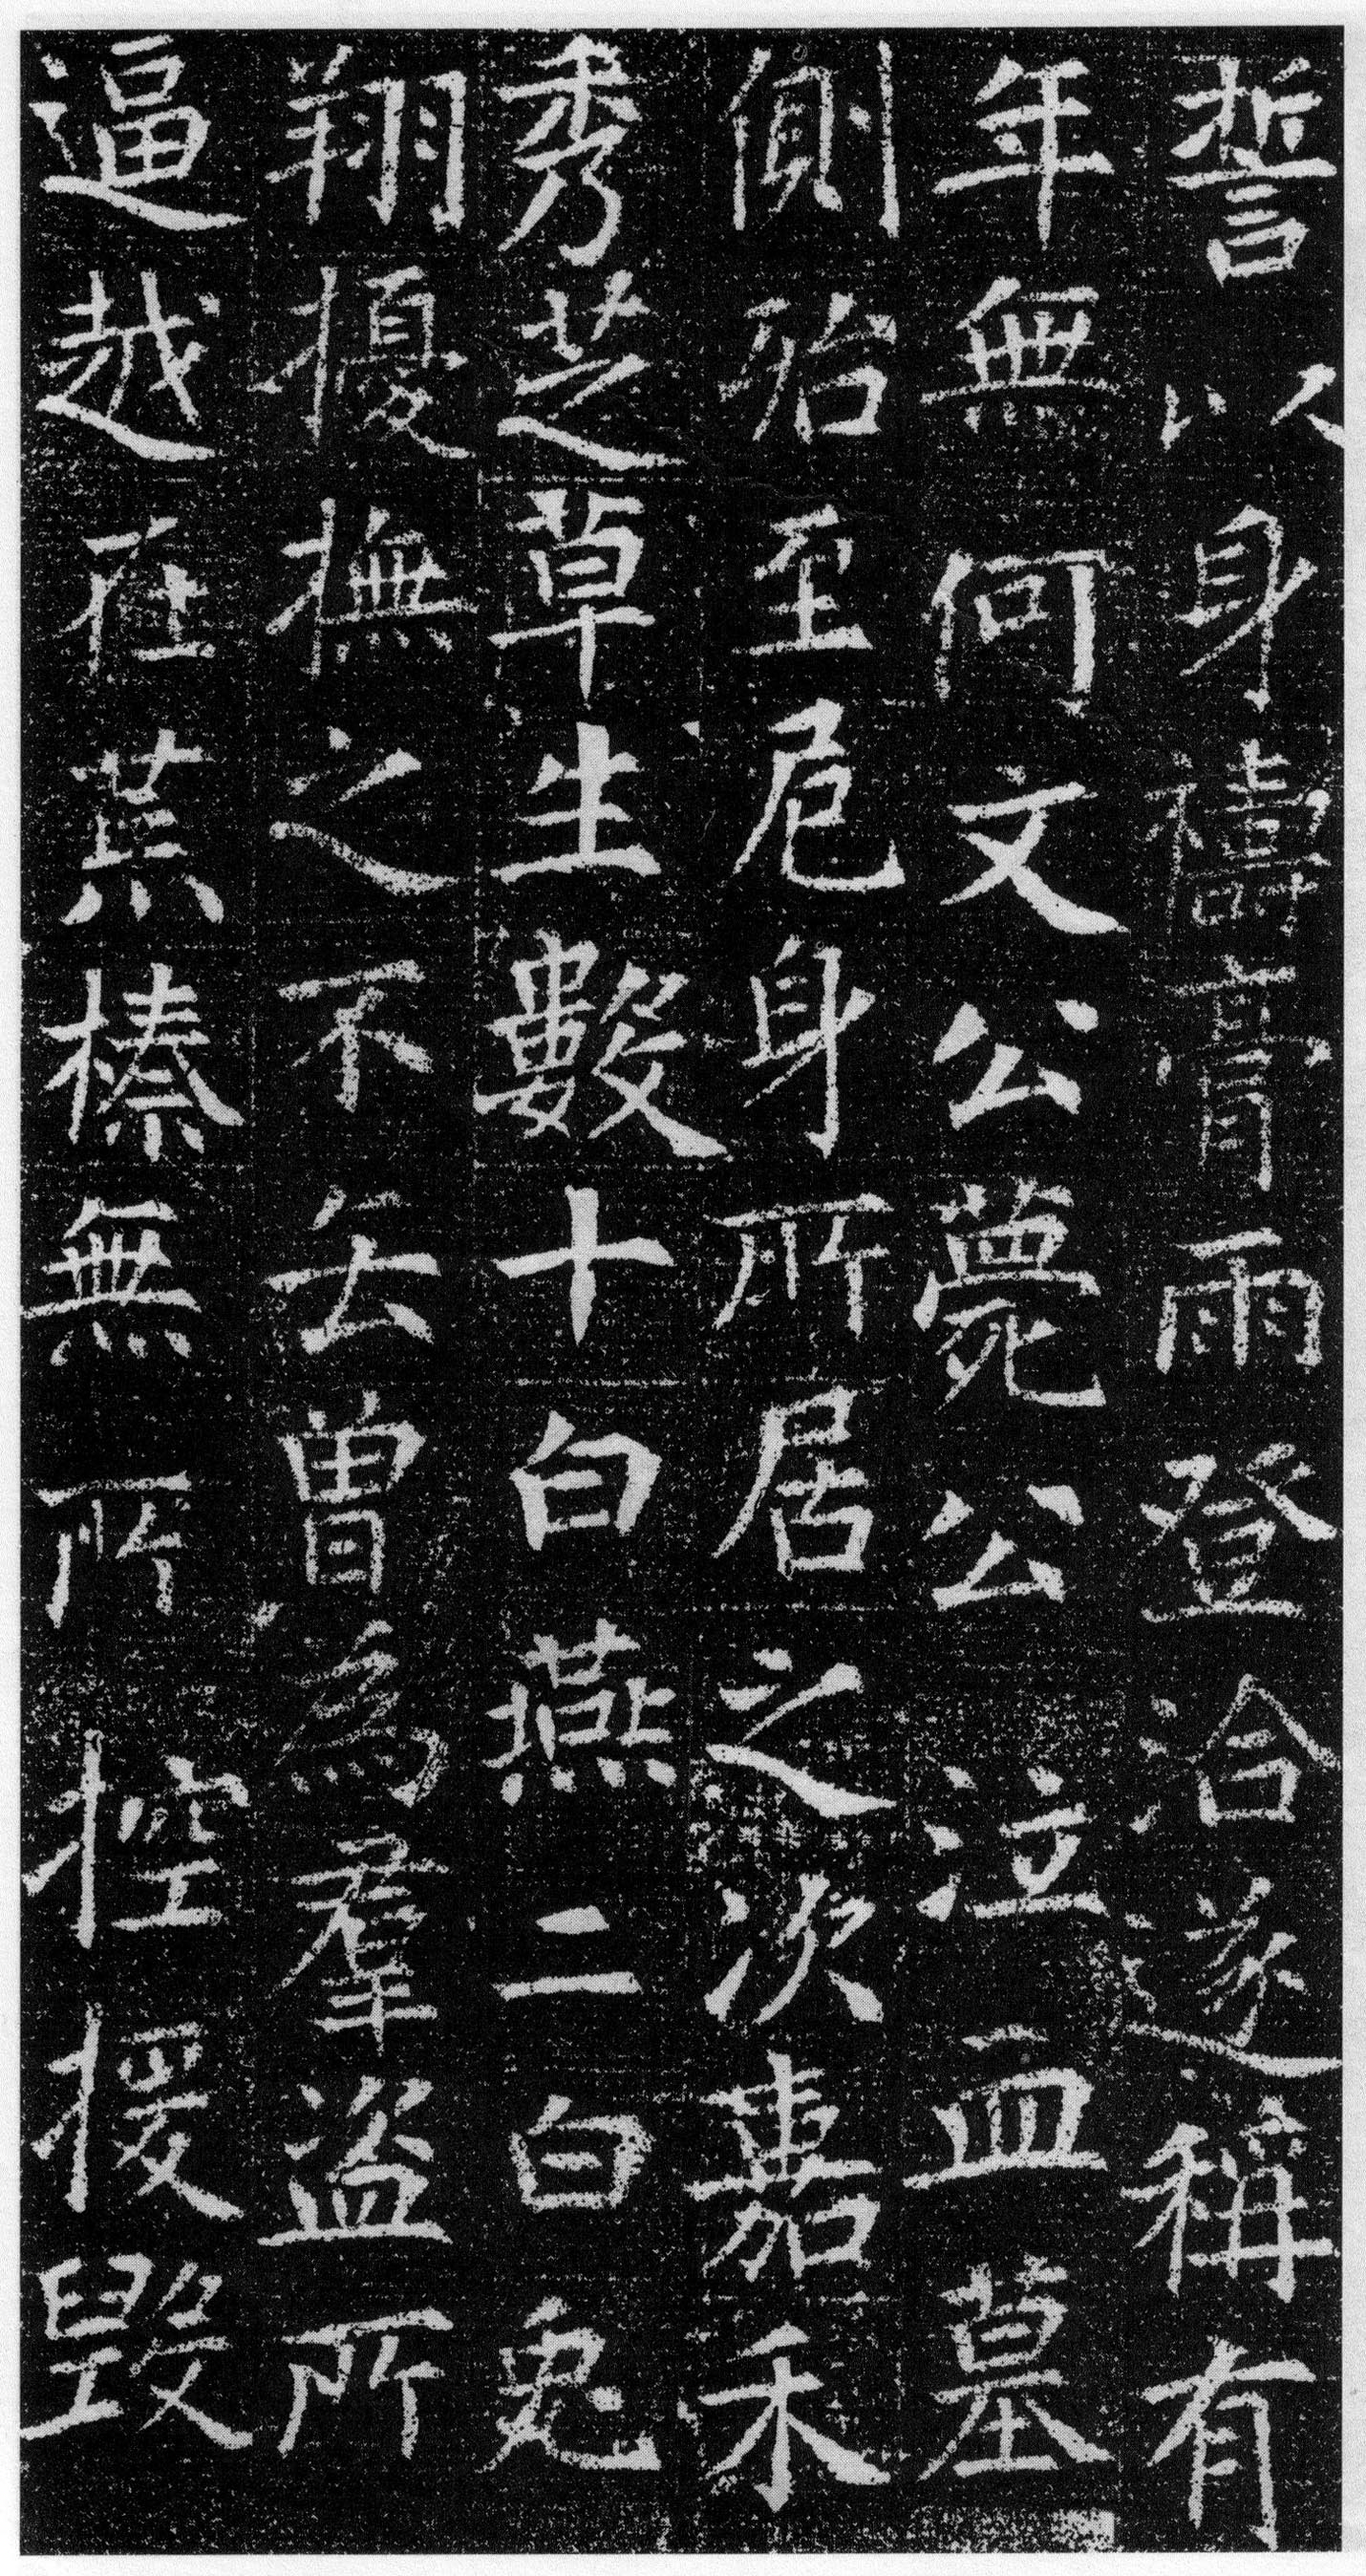 誓以身禱膏雨登洽遂稱有
年無何文公薨公泣血墓
側殆至危身所居之次嘉禾
秀芝草生數十白燕二白兔
翔擾撫之不去曽為羣盜所
逼越在荒榛無所控援毀